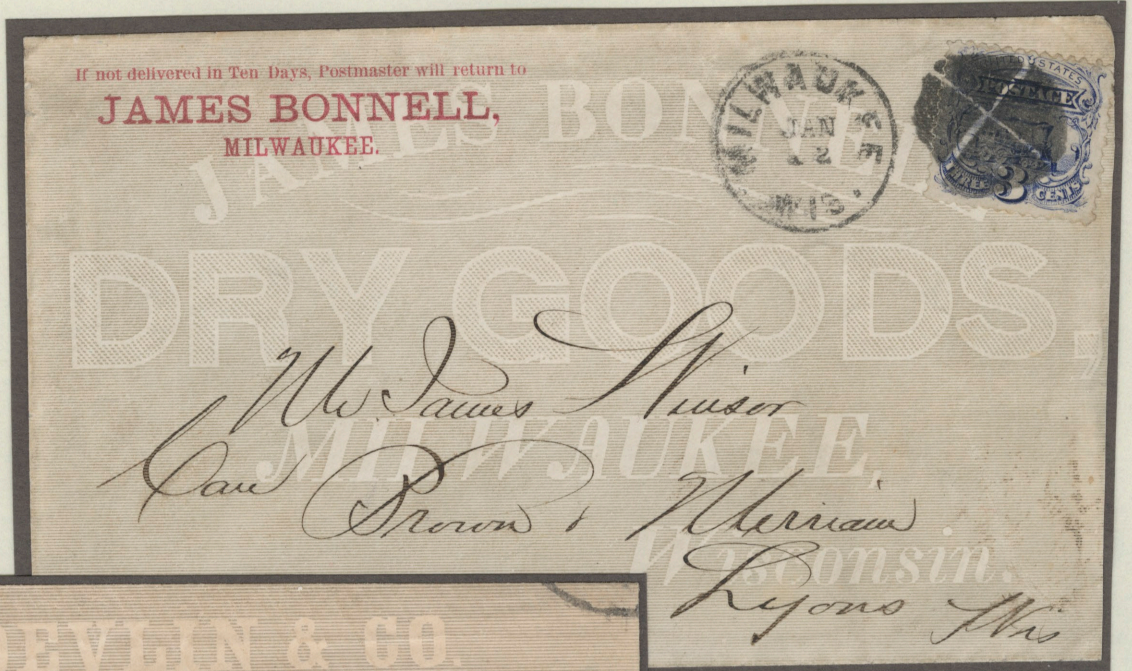 If not delivered in Ten Days, Postmaster will return to
JAMES BONNELL,
MILWAUKEE.
MILWAUKEE
JAN
WIS.
UNITED STATES
POSTAGE
THREE 3 CENTS
JAMES BONNELL
DRY GOODS,
MILWAUKEE,
Wisconsin.
Mr James Winsor
Care Brown & Merriam
Lyons Wis
DEVLIN & CO.